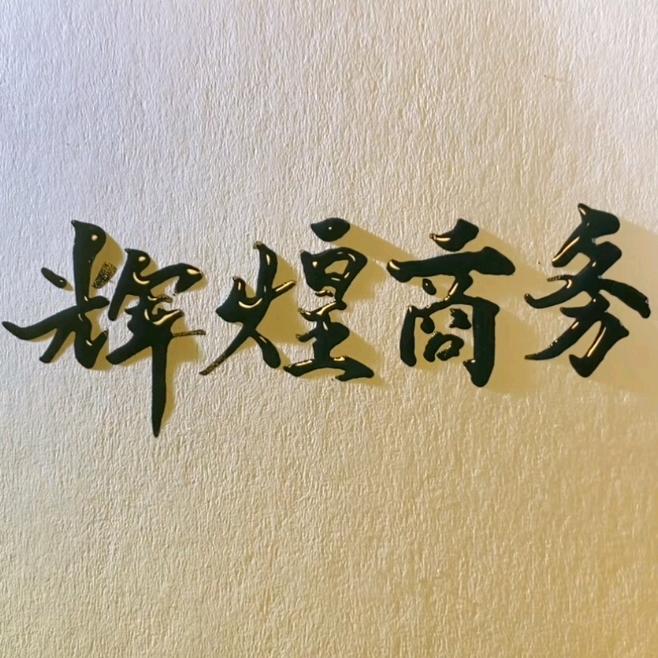 辉煌商务